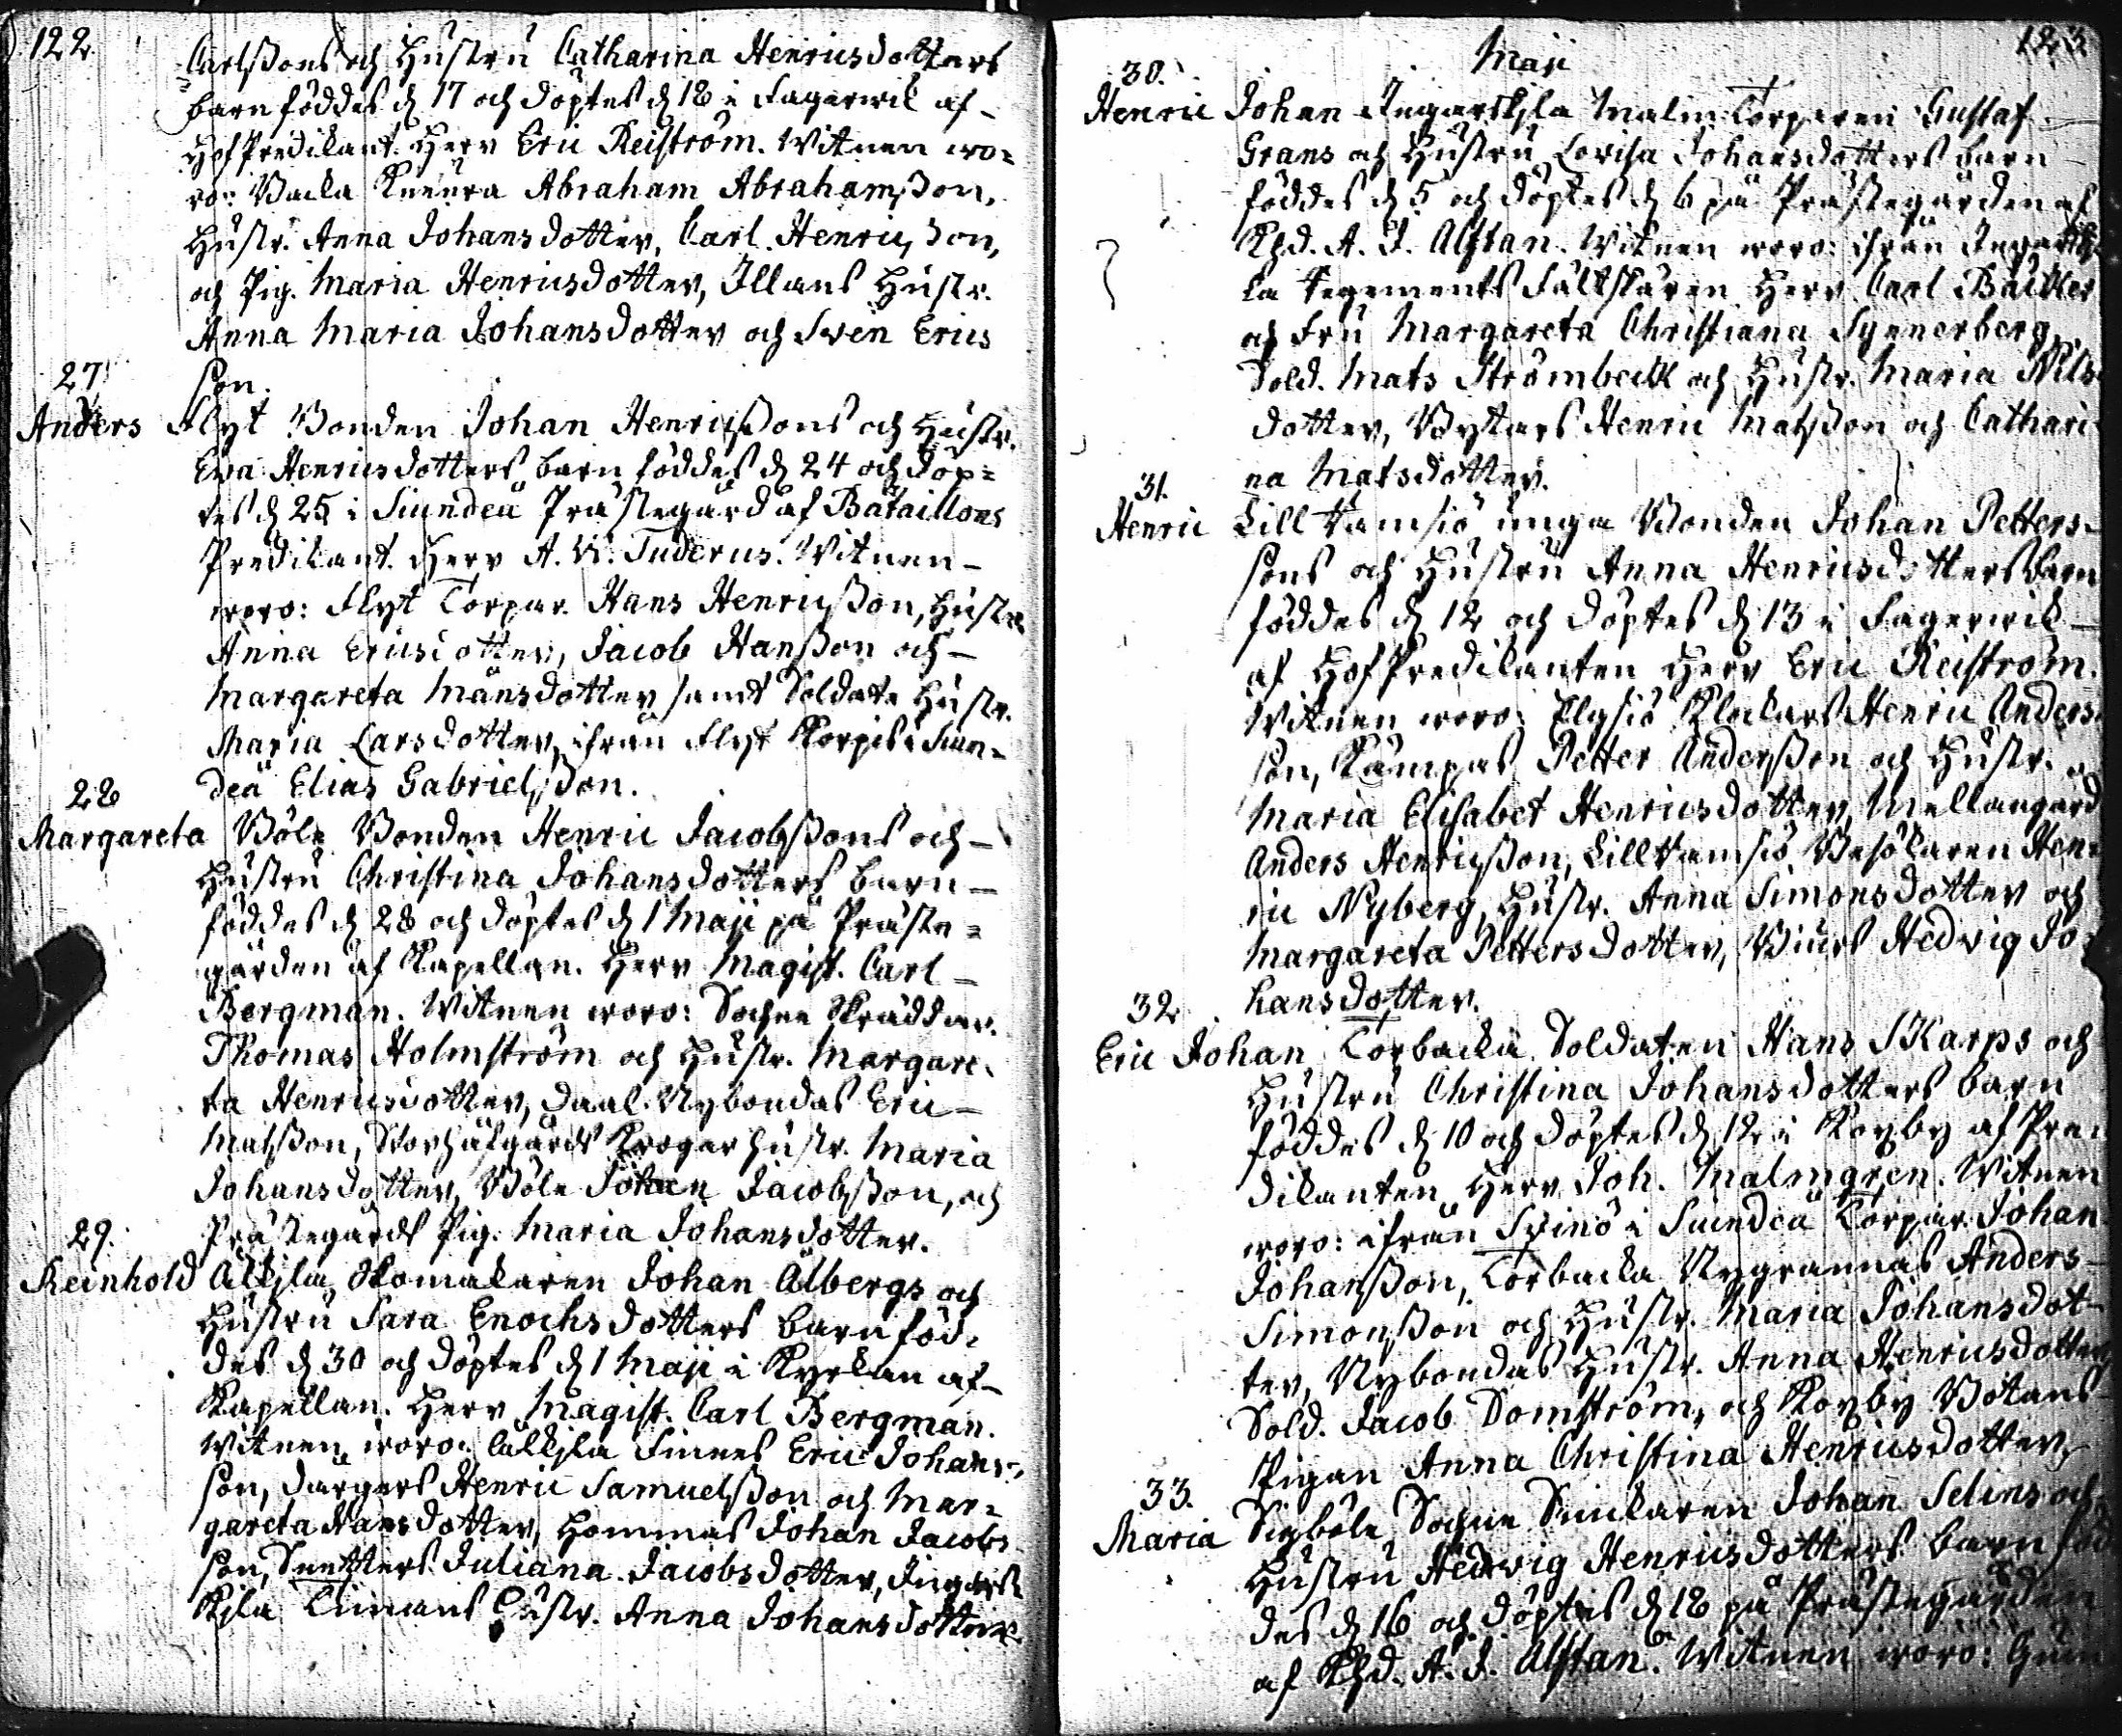 122
Carlssons och Hustru Catharina Henricsdotters
barn föddes d. 17 och döptes d. 18 i Fagerwik af
HofPredikant. Herr Eric Reiström. Witnen wo=
ro: Backa Abraham Abrahamsson,
Hustr. Anna Johansdotter, Carl Henricsson,
och Pig. Maria Henricsdotter, Illans Hustr.
Anna Maria Johansdotter och Sven Erics
son.
27.
Anders Flyt Bonden Johan Henricssons och Hustr.
Eva Henricsdotters barn föddes d. 24 och döp=
tes d. 25 i Siundeå Prästegård af Bataillons
Predikant. Herr A. W. Tuderus. Witnen
woro: Flyt Torpar. Hans Henricsson, Hustr.
Anna Ericsdotter, Jacob Hansson och
Margareta Månsdotter samt Soldate Hustr.
Maria Larsdotter, ifrån Flyt Korpis i Siun=
deå Elias Gabrielsson.
28
Margareta Böle Bonden Henric Jacobssons och
Hustru Christina Johansdotters barn
föddes d. 28 och döptes d. 1 Maji på Präste=
gården af Kapellan. Herr Magist. Carl
Bergman. Witnen woro: Sochne Skräddar.
Thomas Holmström och Hustr. Margare=
ta Henricsdotter, Daal Nybondas Eric
Matsson, Krogar hustr. Maria
Johansdotter, Böle Johan Jacobsson, och
Prästegårds Pig. Maria Johansdotter.
29.
Reinhold Älkjla Skomakaren Johan Ålbergs och
Hustru Sara Enochsdotters barn föd=
des d. 30 och döptes d. 1 Maji i Kyrkan af
Kapellan. Herr Magist. Carl Bergman.
Witnen woro: Finnes Eric Johans=
son, Dargers Henric Samuelsson och Mar=
gareta Hansdotter, Hommas Johan Jacobs
son, Juliana Jacobsdotter, Ingarsk
kjla Hustr. Anna Johansdotter.
123
Maji
30.
Henric Johan Ingarskjla Malm Torparen Gustaf
Grans och Hustru Lovisa Johansdotters barn
föddes d. 5 och döptes d. 6 på Prästegården af
Khd. A. J. Alftan. Witnen woro: ifrån Ingarskj
la Regements Fältskären Herr Carl Bäckler
och Fru Margareta Christiana Synnerberg,
Sold. Mats Strömbeck och Hustr. Maria Nils
dotter, Bytars Henric Matsson och Cathari
na Matsdotter.
31.
Henric Lill Ramsiö unga Bonden Johan Petters=
sons och Hustru Anna Henricsdotters barn
föddes d. 12 och döptes d. 13 i Fagerwik
af HofPredikanten Herr Eric Reiström.
Witnen woro: Elgsiö Klockars Henric Anders
son, Kampas Petter Andersson och Hustr.
Maria Elisabet Henricsdotter, Mellangård
Anders Henricsson, Lill Ramsiö Besökaren Hen
ric Nyberg, Hustr. Anna Simonsdotter och
Margareta Pettersdotter, Hedvig Jo=
hansdotter.
32.
Eric Johan Torbacka Soldaten Hans Skarps och
Hustru Christina Johansdotters barn
föddes d. 10 och döptes d. 12 i Kopby af Pre=
dikanten Herr Joh. Malmgren. Witnen
woro: ifrån Svinö i Siundeå Torpar. Johan
Johansson, Torbacka Nygrannas Anders
Simonsson och Hustr. Maria Johansdot=
ter, Nybondas Hustr. Anna Henricsdotter,
Sold. Jacob Domström, och Kopby Botans
Pigan Anna Christina Henricsdotter,
33.
Maria Sigböle Sochne Snickaren Johan Selins och
Hustru Hedvig Henricsdotters barn föd
des d. 16 och döptes d. 18 på Prästegården
af Khd. A. J. Alftan. Witnen woro: